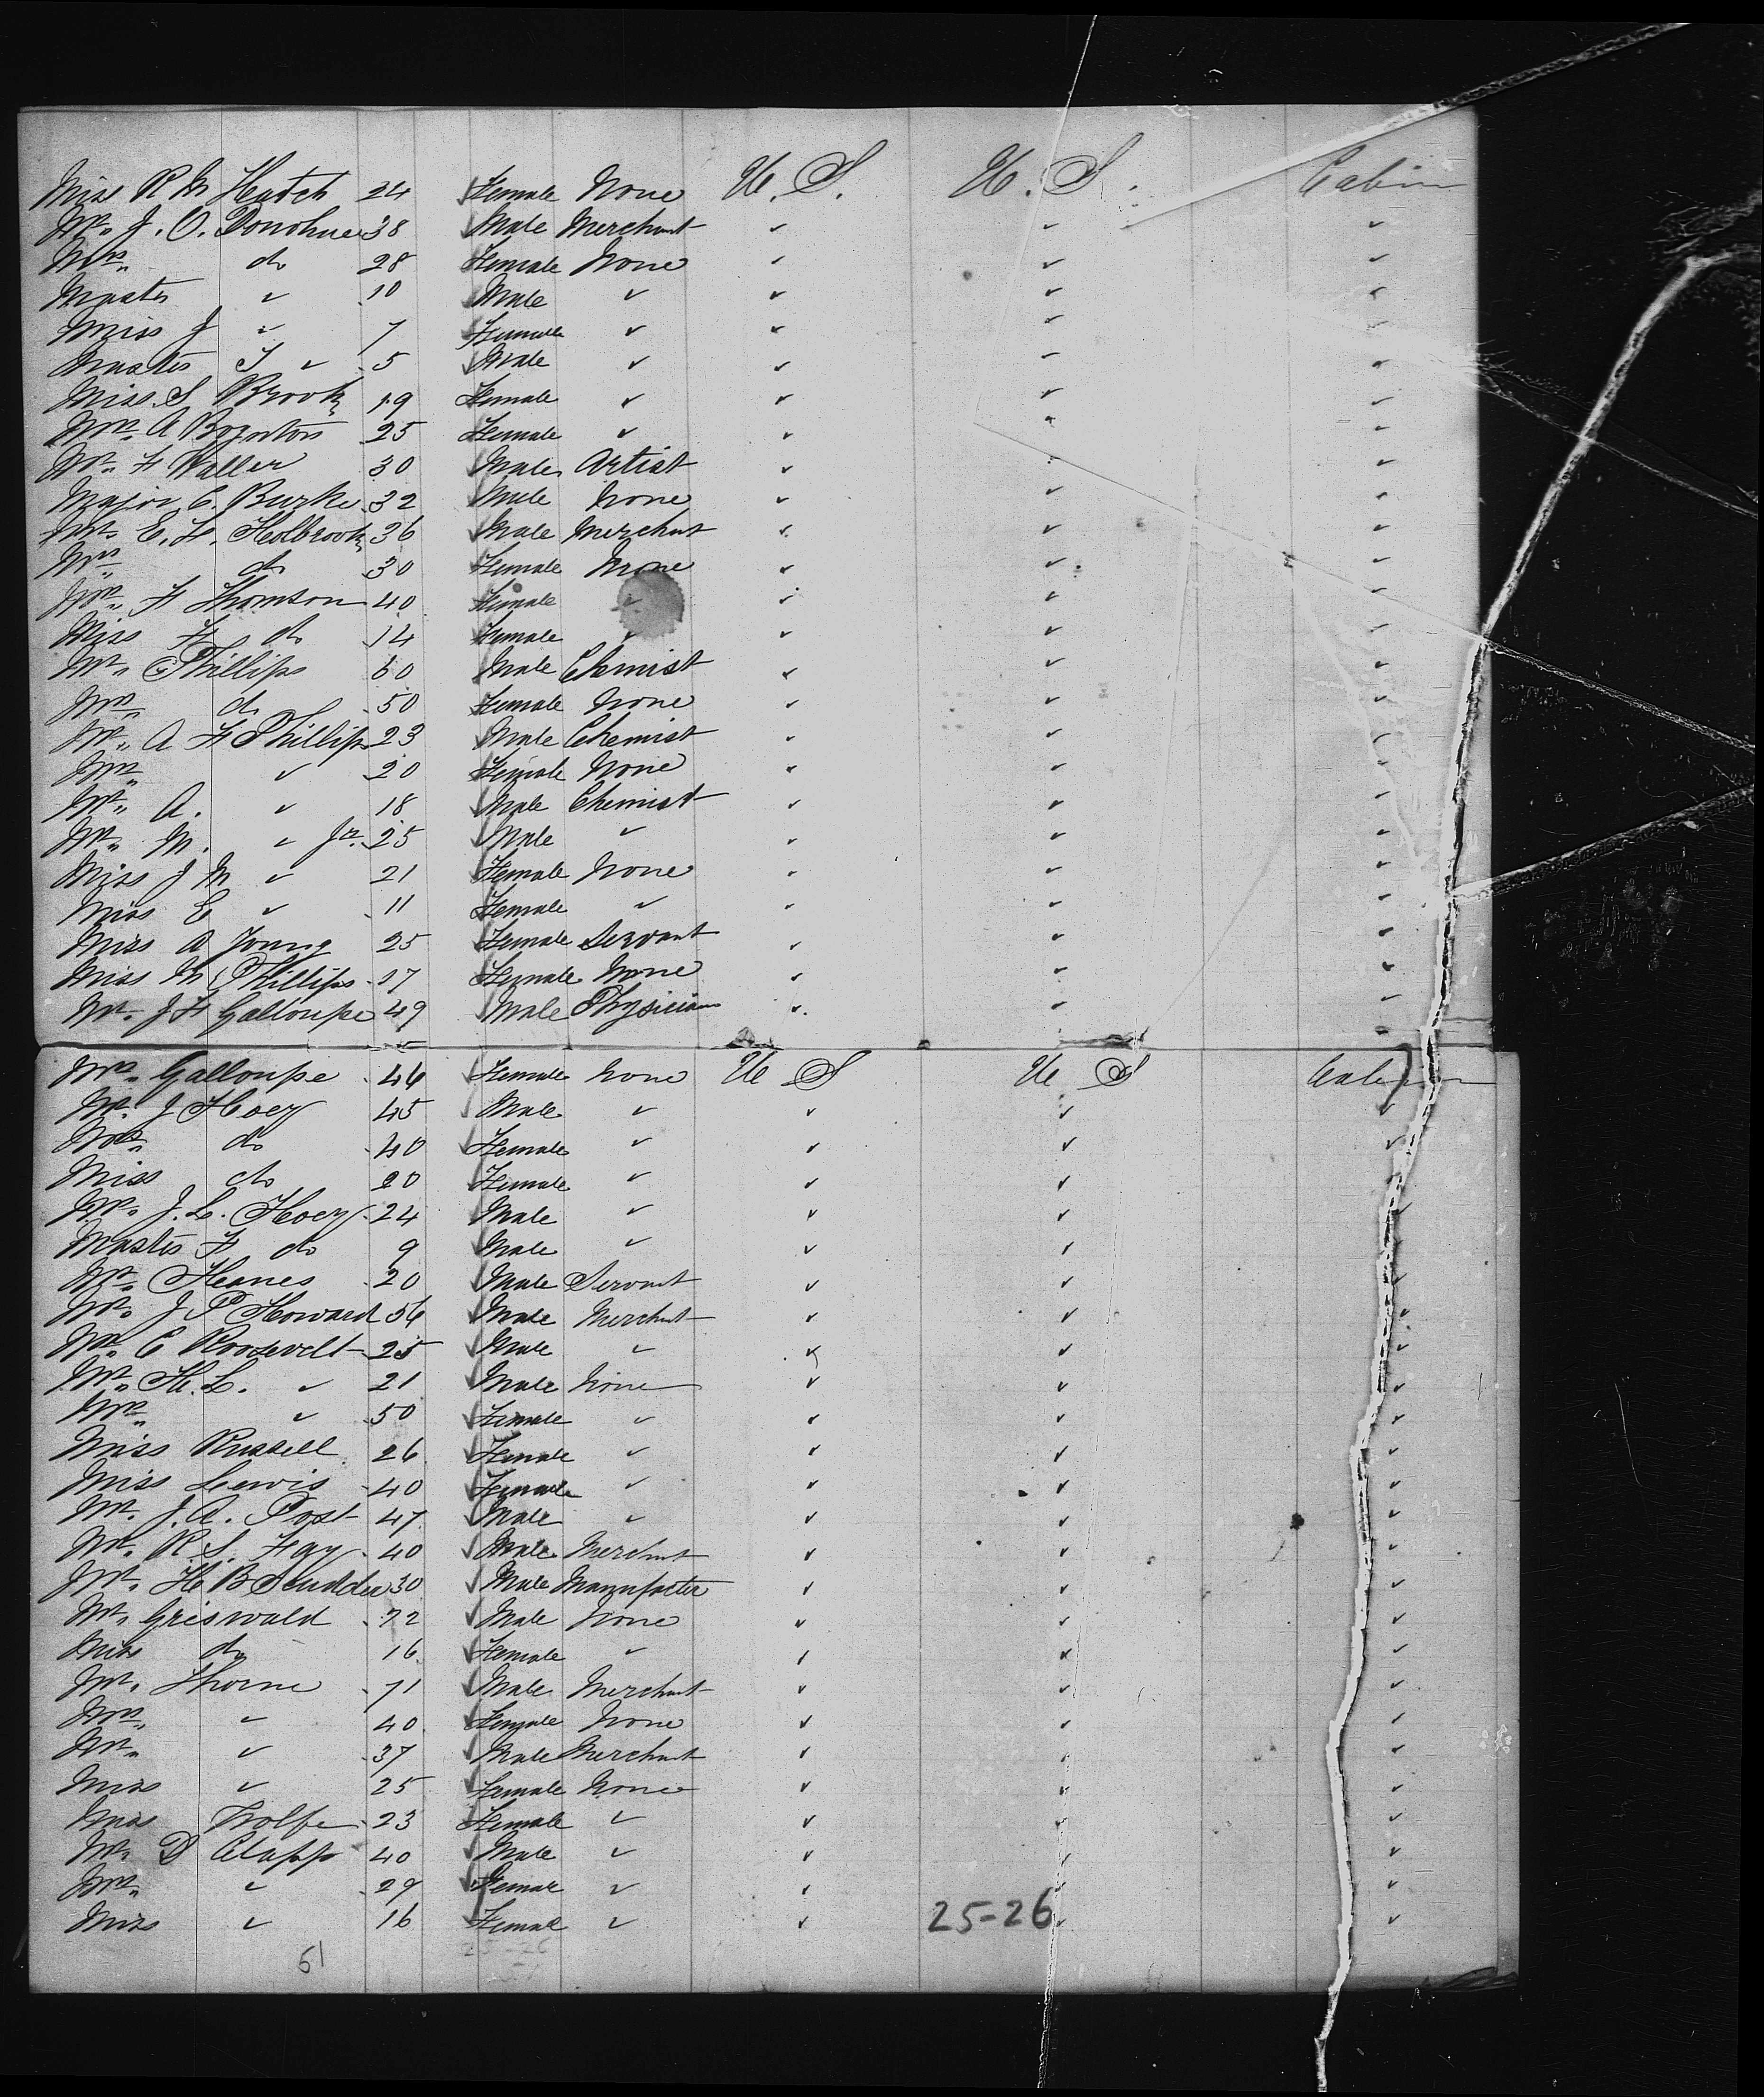 Miss R M Hatch 24 Female None U. S. U. S. Cabin
Mr. J. O. Donohue 38 Male Merchant " " "
Mrs. do 28 Female None " " "
Master " 10 Male " " " "
Miss J " 7 Female " " " "
Master T " 5 Male " " " "
Miss S Brooks 19 Female " " " "
Mrs. A Boynton 25 Female " " " "
Mr. F Waller 30 Male Artist " " "
Major C. Burke 32 Male None " " "
Mr. E. F. Holbrook 36 Male Merchant " " "
Mrs. do 30 Female None " " "
Mrs. F Thomson 40 Female " " " "
Miss F do 14 Female " " " "
Mr. Phillips 60 Male Chemist " " "
Mrs. do 50 Female None " " "
Mr. A F Phillips 23 Male Chemist " " "
Mrs. " 20 Female None " " "
Mr. A. " 18 Male Chemist " " "
Mr. M. " Jr. 25 Male " " " "
Miss J M " 21 Female None " " "
Miss E " 11 Female " " " "
Miss A Young 25 Female Servant " " "
Miss M Phillips 17 Female None " " "
Mr. J F Galloupe 49 Male Physician " " "
Mrs. Galloupe 46 Female None U S U S Cabin
Mr. J Hoey 45 Male " " " "
Mrs. do 40 Female " " " "
Miss do 20 Female " " " "
Mr. J. L. Hoey 24 Male " " " "
Master F do 9 Male " " " "
Mr. Hanes 20 Male Servant " " "
Mr. J P Howard 56 Male Merchant " " "
Mr. C Roosevelt 25 Male " " " "
Mr. H. L. " 21 Male None " " "
Mrs. " 50 Female " " " "
Miss Russell 26 Female " " " "
Miss Lewis 40 Female " " " "
Mr. J. A. Post 47 Male " " " "
Mr. R. S. Fay 40 Male Merchant " " "
Mr. H B Scudder 30 Male Manufacter " " "
Mr. Griswald 72 Male None " " "
Miss do 16 Female " " " "
Mr. Thorne 71 Male Merchant " " "
Mrs. " 40 Female None " " "
Mr. " 37 Male Merchant " " "
Miss " 25 Female None " " "
Miss Wolfe 23 Female " " " "
Mr. D Clapp 40 Male " " " "
Mrs. " 29 Femal " " " "
Miss " 16 Femal " " " "
25-26
61